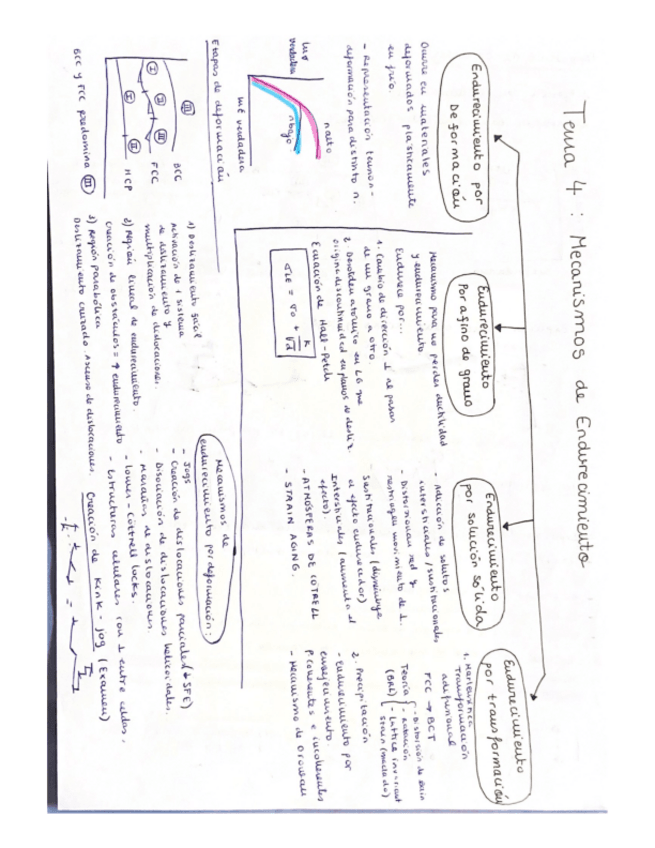 Tema 4 : Mecanismos de Endurecimiento
Endurecimiento por
Deformación
Ocurre en materiales
deformados plásticamente
en frío.
- Representación tensión-
deformación para distinto n.
verdadera
n alto
n bajo
verdadera
Etapas de deformación
III
BCC
I
II
III
FCC
I
II
HCP
BCC y FCC predomina III
1) Deslizamiento fácil
Activación de 1 sistema
de deslizamiento y
multiplicación de dislocaciones.
2) Región lineal de endurecimiento.
Creación de obstáculos = ↑ endurecimiento
3) Región parabólica
Deslizamiento cruzado. Ascenso de dislocaciones.
Endurecimiento
Por afino de grano
Mecanismo para no perder ductilidad
y endurecimiento
Endurece por...
1. Cambio de dirección ⊥ al pasar
de un grano a otro.
2. Desorden atómico en LG que
origina discontinuidad en planos de desliz.
Ecuación de Hall-Petch
σLE = σ0 + K/√d
Mecanismos de
endurecimiento por deformación:
- Jogs
- Creación de dislocaciones parciales (↓ SFE)
- Disociación de dislocaciones helicoidales.
- Marañas de dislocaciones.
- Lomer-Cottrell locks.
- Estructuras celulares con ⊥ entre celdas.
Creación de Kink - jog (Examen)
Endurecimiento
por solución sólida
- Adición de solutos
intersticiales/sustitucionales
- Distorsionan red y
restringen movimiento de ⊥.
Sustitucionales (disminuye
el efecto endurecedor)
Intersticiales (aumenta el
efecto).
- ATMÓSFERAS DE COTRELL
- STRAIN AGING.
Endurecimiento
por transformación
1. Martensítica
Transformación
adifusional
FCC → BCT
Teoría (BRL) { - Distorsión de Bain
- Rotación
- Lattice invariant
strain (maclado)
2. Precipitación
- Endurecimiento por
envejecimiento.
P. coherentes e incoherentes
- Mecanismo de Orowan